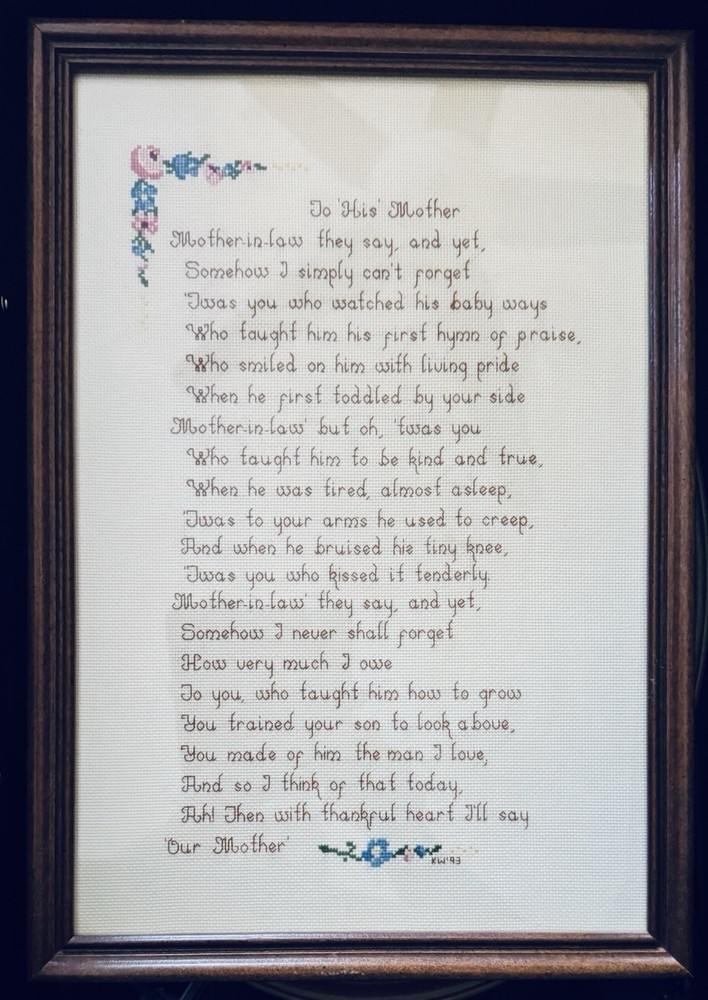 To 'His' Mother
Mother-in-law they say, and yet,
Somehow I simply can't forget
'Twas you who watched his baby ways
Who taught him his first hymn of praise,
Who smiled on him with living pride
When he first toddled by your side
Mother-in-law' but oh, 'twas you
Who taught him to be kind and true,
When he was tired, almost asleep,
'Twas to your arms he used to creep,
And when he bruised his tiny knee,
'Twas you who kissed it tenderly.
Mother-in-law' they say, and yet,
Somehow I never shall forget
How very much I owe
To you, who taught him how to grow
You trained your son to look above,
You made of him the man I love,
And so I think of that today,
Ah! Then with thankful heart I'll say
'Our Mother'
KW'93